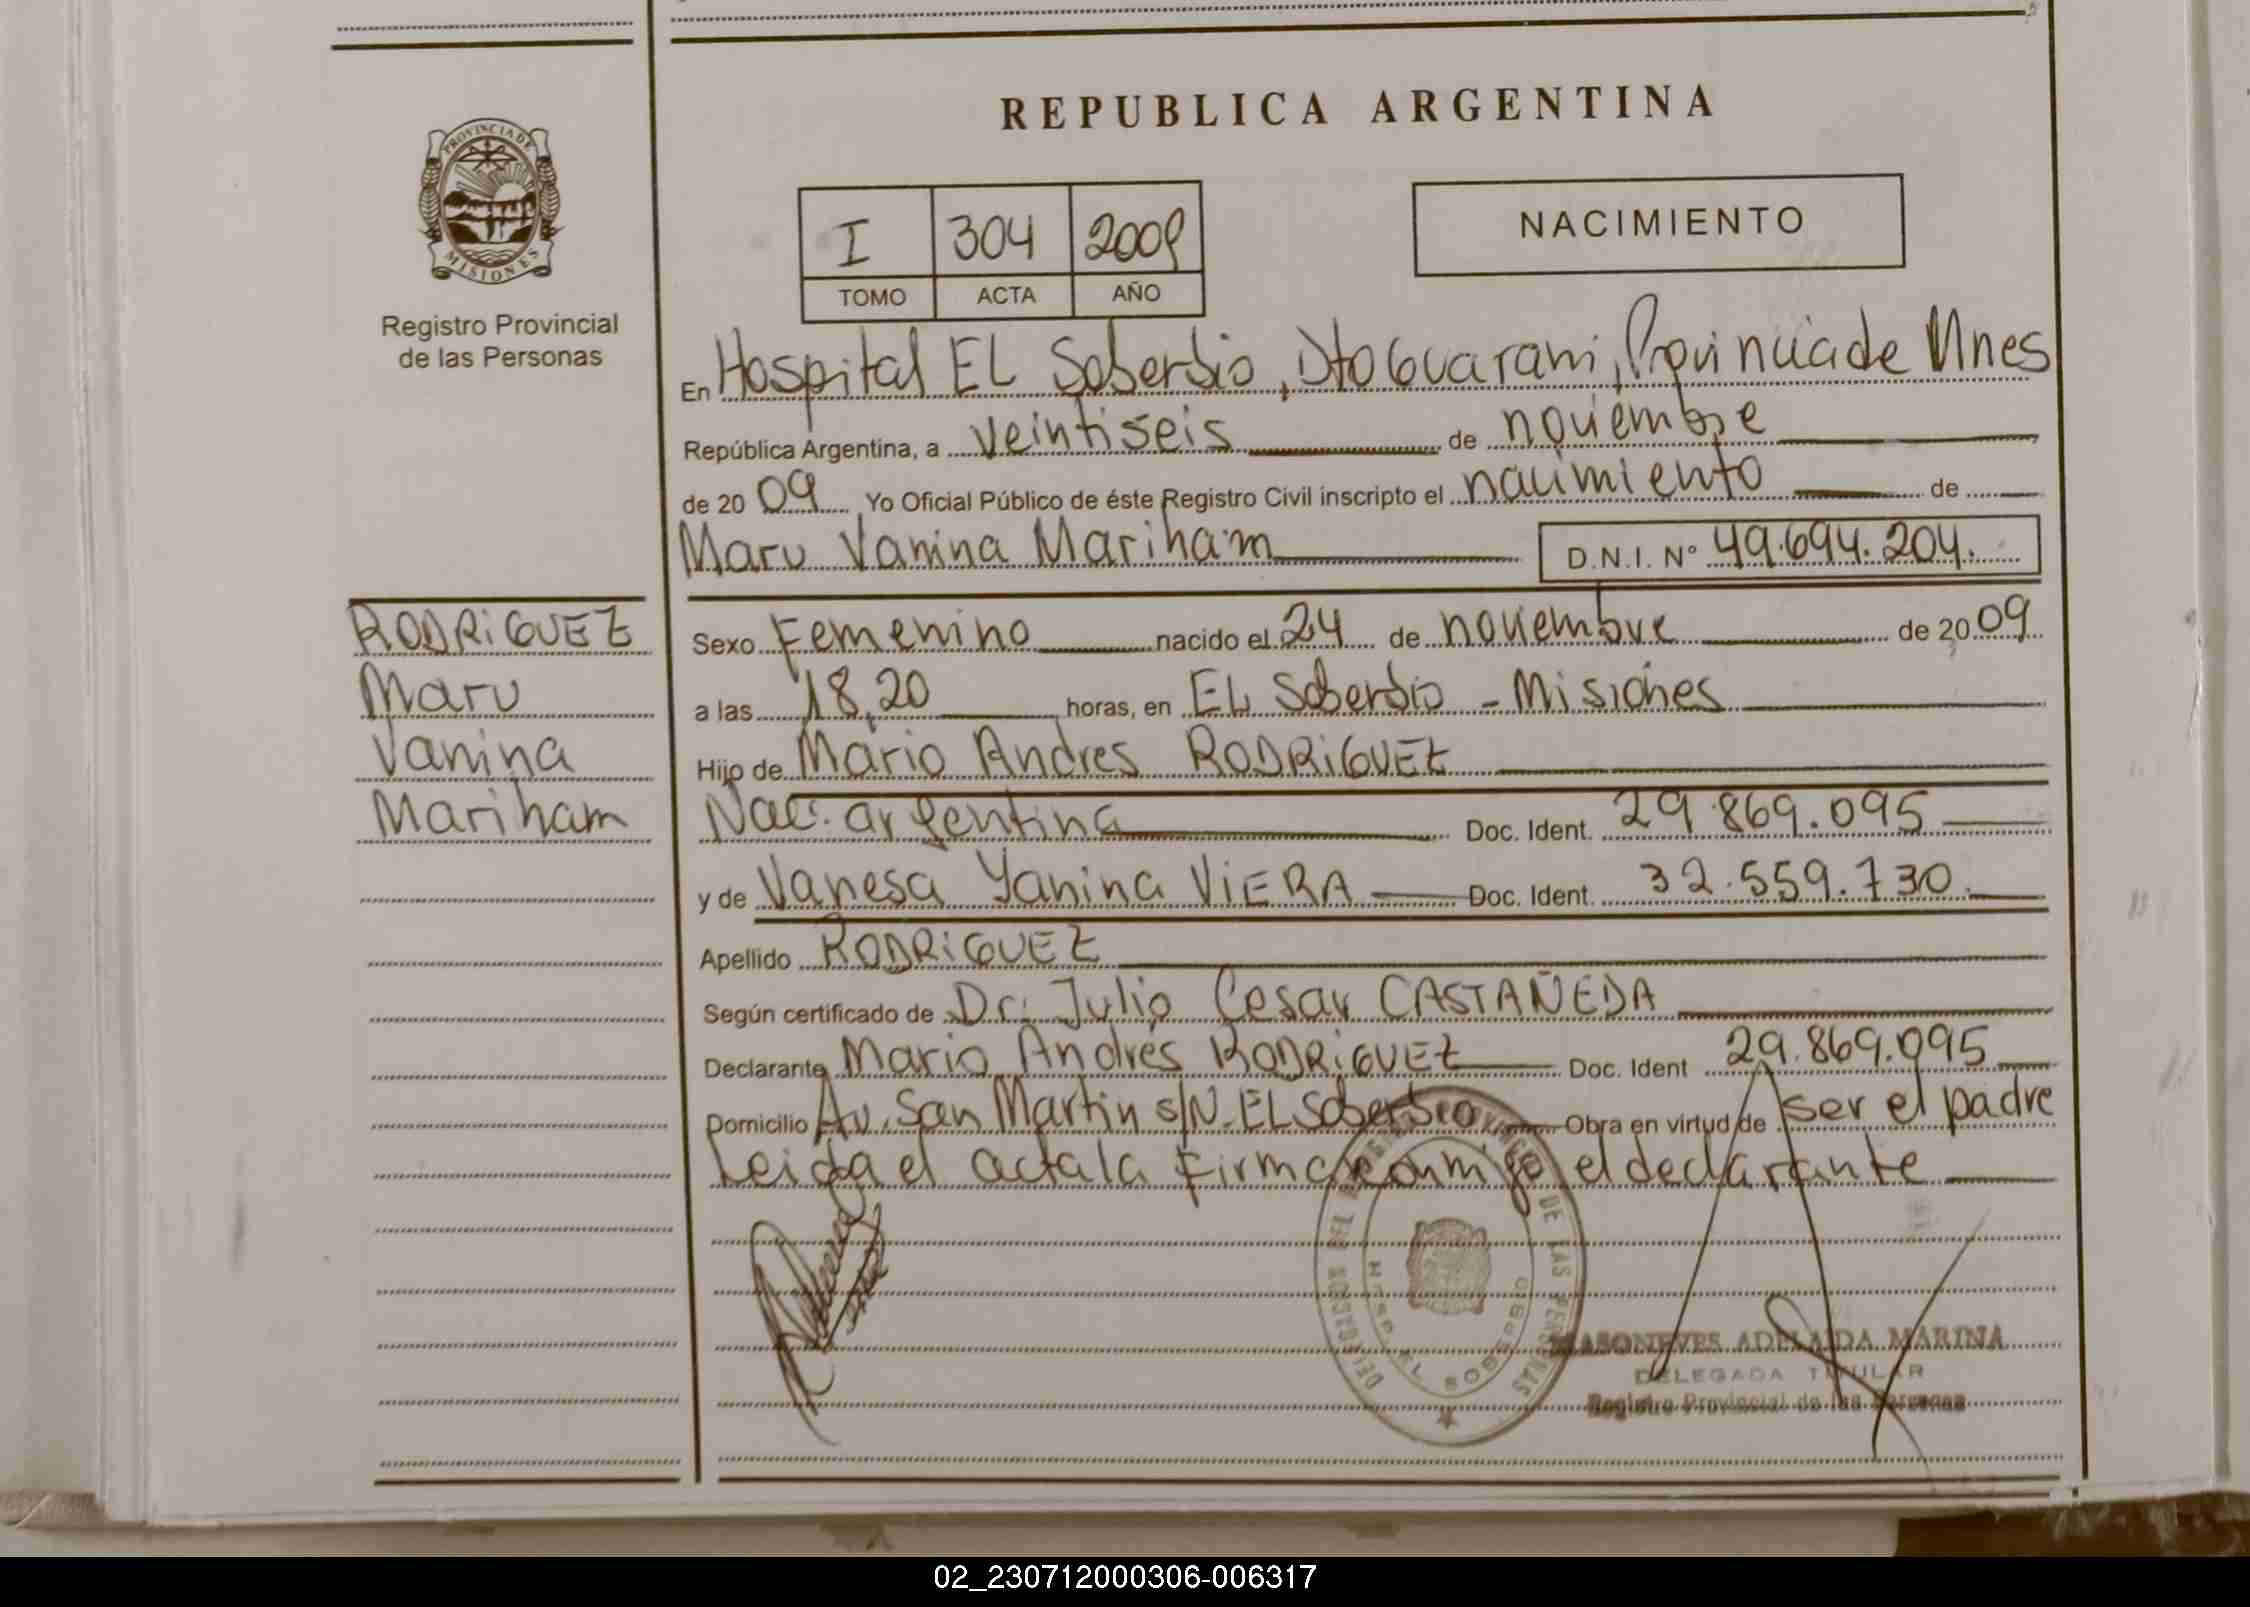 REPUBLICA ARGENTINA
PROVINCIA DE
MISIONES
Registro Provincial
de las Personas
I 304 2009
TOMO ACTA AÑO
NACIMIENTO
En Hospital EL Soberbio, Dto Guarani, Provincia de Mnes
República Argentina, a veintiseis de noviembre
de 20 09 Yo Oficial Público de éste Registro Civil inscripto el nacimiento de
Maru Vanina Mariham D.N.I. Nº 49.694.204.
RODRIGUEZ
Maru
Vanina
Mariham
Sexo Femenino nacido el 24 de noviembre de 20 09
a las 18,20 horas, en EL Soberbio - Misiones
Hijo de Mario Andres RODRIGUEZ
Nac. argentina Doc. Ident. 29.869.095
y de Vanesa Yanina VIERA Doc. Ident. 32.559.730.
Apellido RODRIGUEZ
Según certificado de Dr. Julio Cesar CASTAÑEDA
Declarante Mario Andres RODRIGUEZ Doc. Ident 29.869.095
Domicilio Av. San Martin s/N. EL Soberbio Obra en virtud de ser el padre
Leida el acta la firma conmigo el declarante
DE LAS PERSONAS
EL SOBERBIO
ADELAIDA MARINA
DELEGADA TITULAR
Registro Provincial de las Personas
02_230712000306-006317